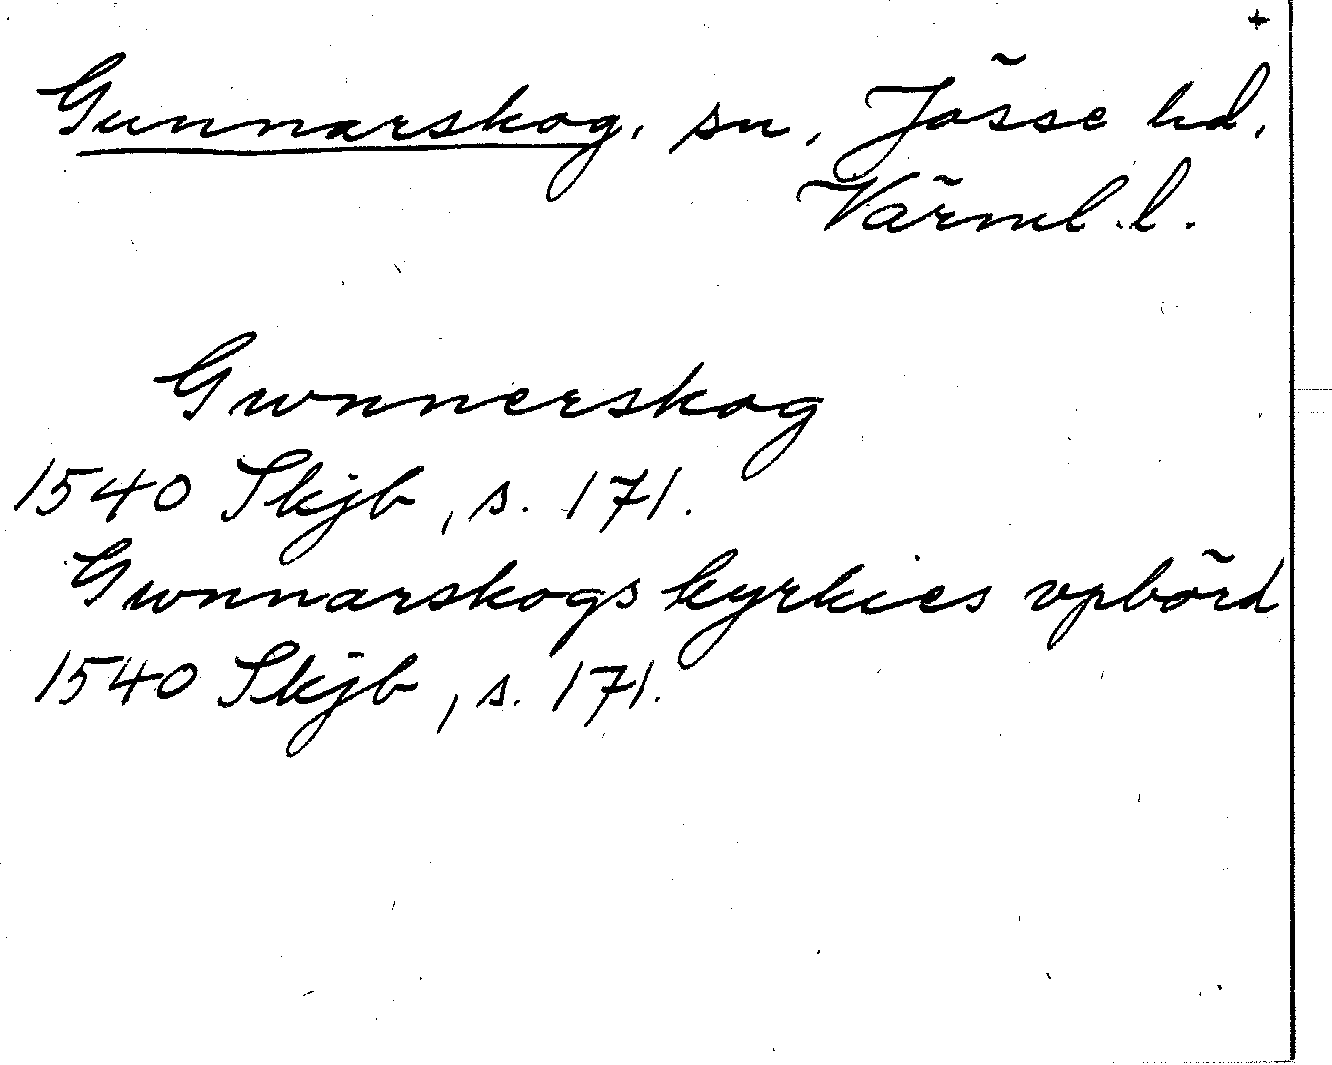 +
Gunnarskog, sn, Jösse hd,
Värml. l.
Gwnnerskog
1540 Skjb, s. 171.
Gwnnarskogs kyrkies vpbörd
1540 Skjb, s. 171.